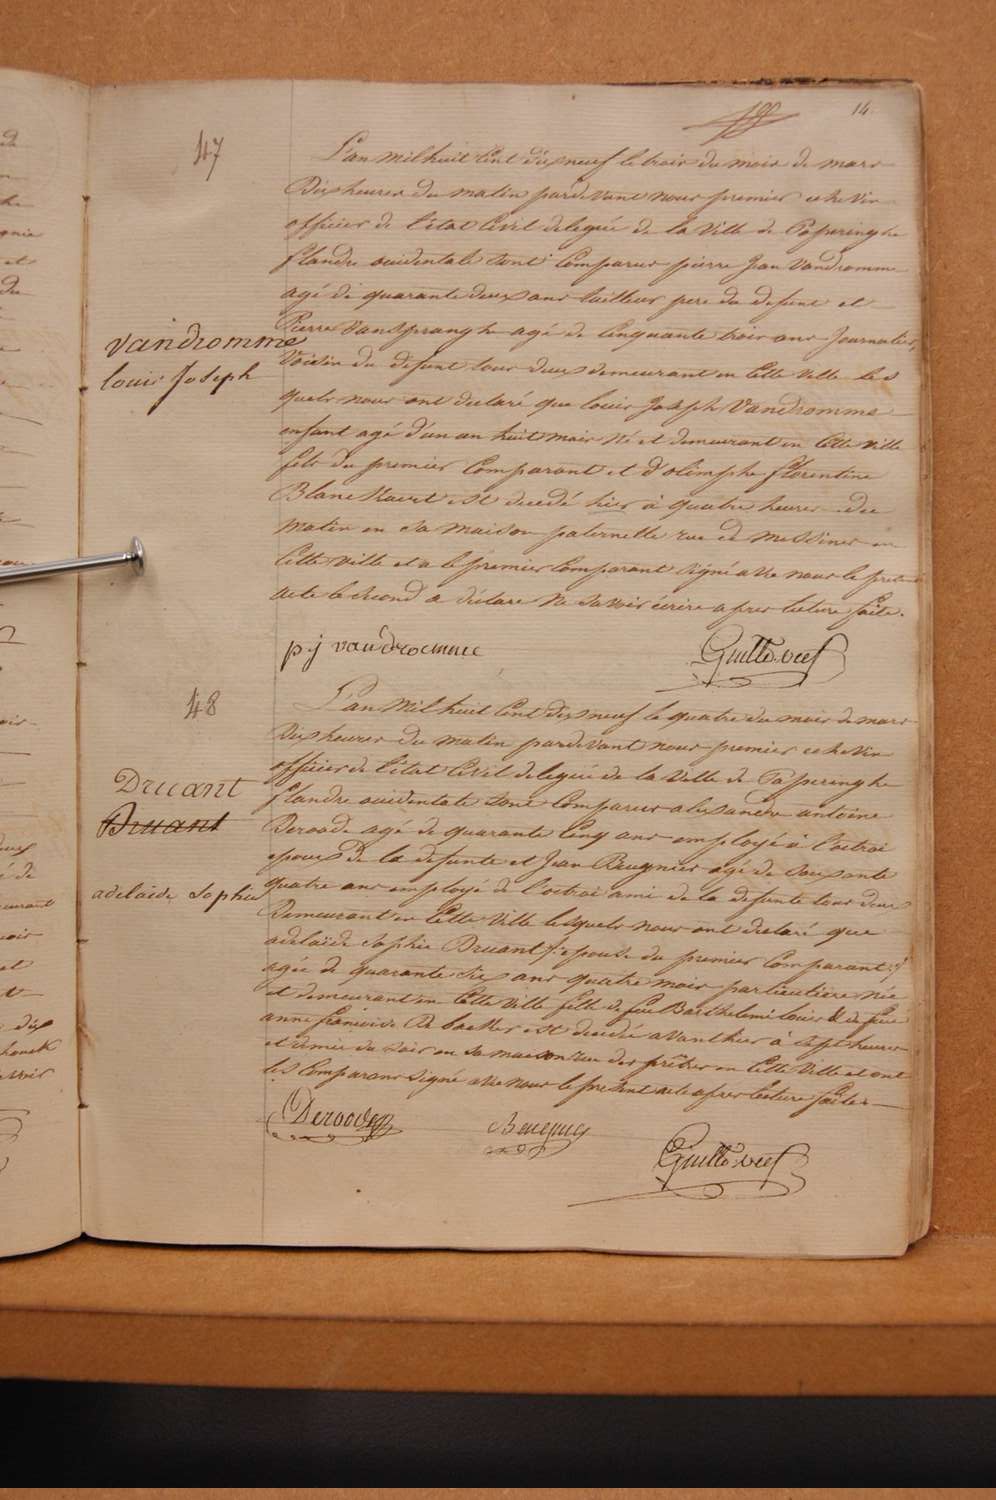 14.
47
L'an mil huit Cent dix neuf le trois du mois de mars
Dix heures du matin pardevant nous premier echevin
officier de l'état Civil delegué de la Ville de Poperinghe
flandre occidentale sont Comparus pierre Jean Vandromme
agé de quarante deux ans tailleur pere du defunt et
Pierre Vanspranghe agé de Cinquante trois ans Journalier,
Voisin du defunt tous deux demeurant en Cette Ville les
quels nous ont declaré que louis Joseph Vandromme
enfant agé d'un an huit mois né et demeurant en Cette Ville
fils du premier Comparant et d'olimphe florentine
Blanckaert est decedé hier à quatre heures du
matin en sa maison paternelle rue de Messines en
Cette Ville et a le premier Comparant signé avec nous le present
acte le second a déclaré ne savoir écrire apres lecture faite.
vandromme
louis Joseph
p.j vandromme
48
L'an Mil huit Cent dix neuf le quatre du mois de mars
Dix heures du matin pardevant nous premier echevin
officier de l'état Civil delegué de la Ville de Poperinghe
flandre occidentale sont Comparus alexandre antoine
Deroode agé de quarante Cinq ans employé à l'octroi
epoux de la defunte et Jean Beugnies agé de Soixante
quatre ans employé de l'octroi ami de la defunte tous deux
Demeurant en Cette Ville lesquels nous ont declaré que
adelaïde Sophie Druant epouse du premier Comparant
agée de quarante six ans quatre mois particulière née
et demeurant en Cette Ville fille de feu Barthelemi louis & de feue
anne françoise De backer est decedée avanthier à sept heures
et demie du soir en sa maison rue des prêtres en Cette Ville et ont
les Comparans signé avec nous le présent acte apres lecture faite.
Druant
Druant
adelaïde Sophie
Deroode
Beugnies